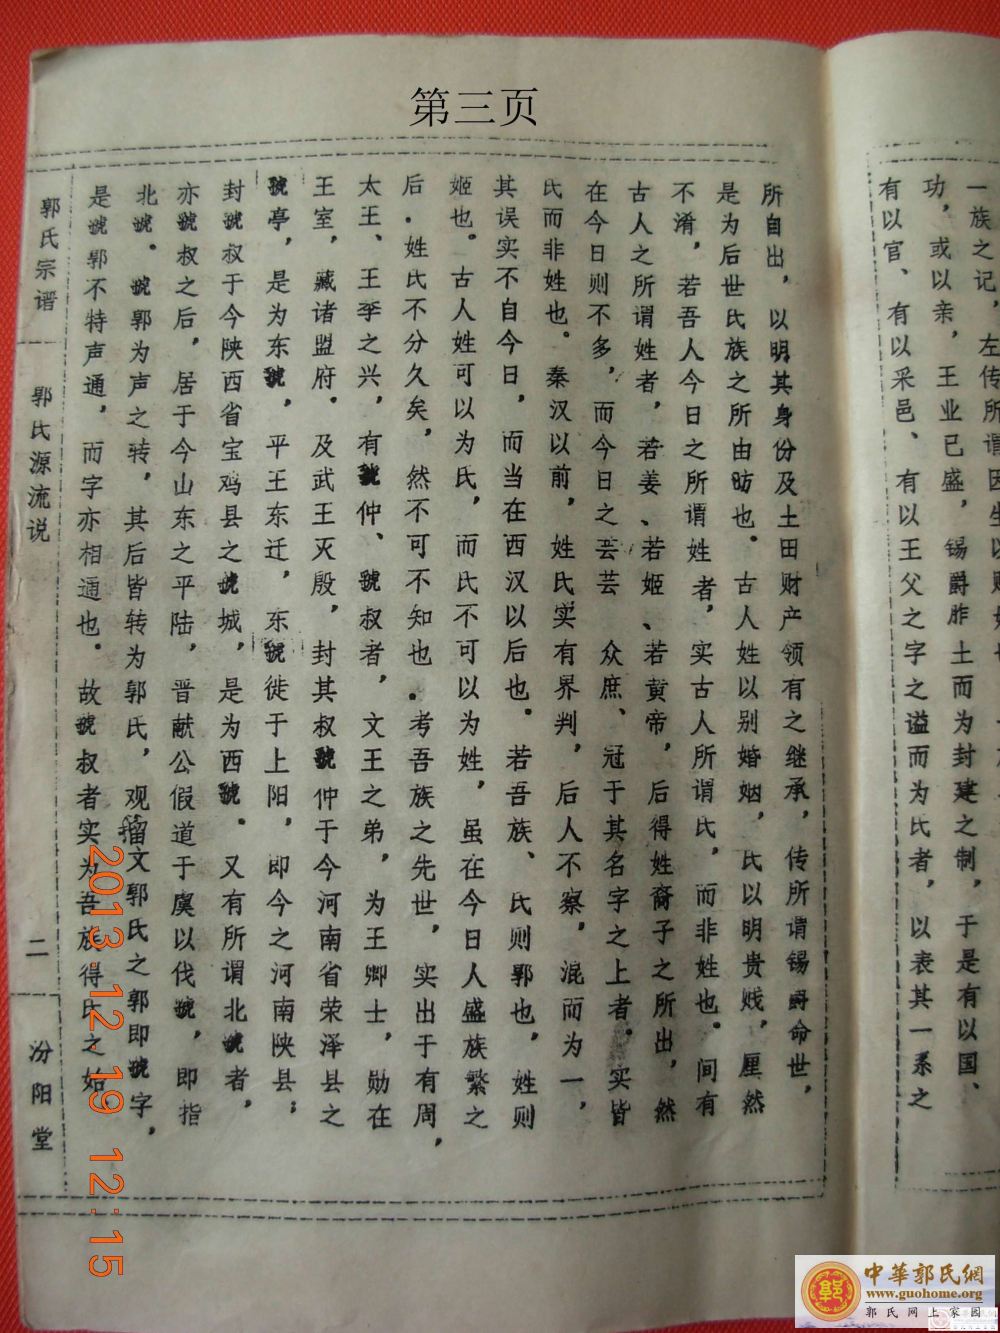 第三页
一族之记，左传所谓因生以赐姓
功，或以亲，王业已盛，锡爵胙土而为封建之制，于是有以国、
有以官、有以采邑、有以王父之字之谥而为氏者，以表其一系之
所自出，以明其身份及土田财产领有之继承，传所谓锡爵命世，
是为后世氏族之所由昉也。古人姓以别婚姻，氏以明贵贱，厘然
不淆，若吾人今日之所谓姓者，实古人所谓氏，而非姓也。间有
古人之所谓姓者，若姜、若姬、若黄帝，后得姓裔子之所出，然
在今日则不多，而今日之芸芸众庶、冠于其名字之上者。实皆
氏而非姓也。秦汉以前，姓氏实有界判，后人不察，混而为一，
其误实不自今日，而当在西汉以后也。若吾族、氏则郭也，姓则
姬也。古人姓可以为氏，而氏不可以为姓，虽在今日人盛族繁之
后．姓氏不分久矣，然不可不知也．考吾族之先世，实出于有周，
太王、王季之兴，有虢仲、虢叔者，文王之弟，为王卿士，勋在
王室，藏诸盟府．及武王灭殷，封其叔虢仲于今河南省荣泽县之
虢亭，是为东虢，平王东迁，东虢徙于上阳，即今之河南陕县；
封虢叔于今陕西省宝鸡县之虢城，是为西虢．又有所谓北虢者，
亦虢叔之后，居于今山东之平陆，晋献公假道于虞以伐虢，即指
北虢。虢郭为声之转，其后皆转为郭氏，观籀文郭氏之郭即虢字，
是虢郭不特声通，而字亦相通也．故虢叔者实为吾族得氏之始
郭氏宗谱
郭氏源流说
二
汾阳堂
2013.12.19 12:15
中華郭氏網
www.guohome.org
郭氏网上家园